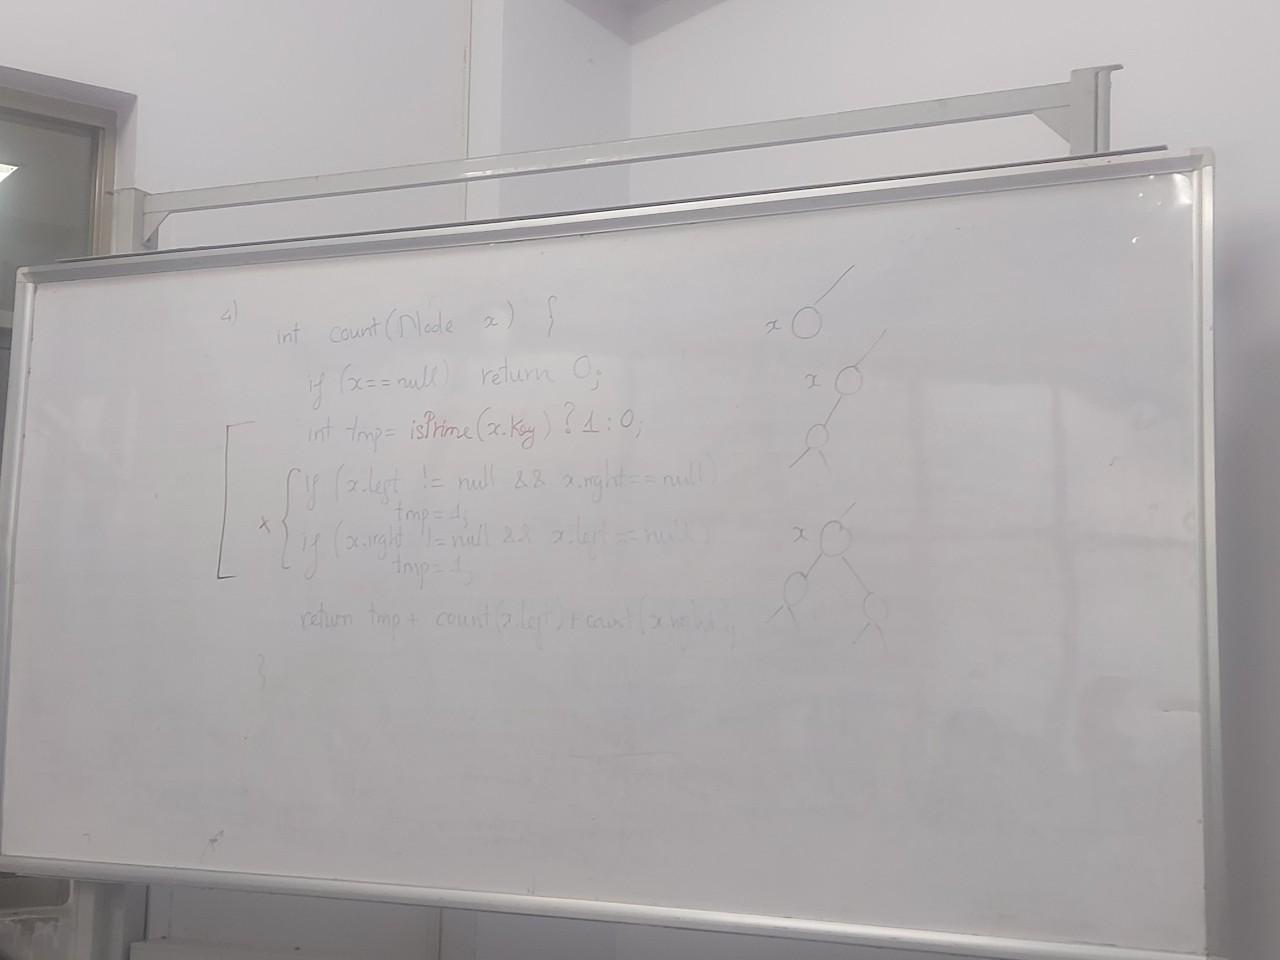 4)
int count(Node x) {
if (x==null) return 0;
int tmp= isPrime(x.key) ? 1 : 0;
x { if (x.left != null && x.right==null)
tmp=1;
if (x.right != null && x.left ==null)
tmp=1;
return tmp + count(x.left)+count(x.right);
}
x
x
x